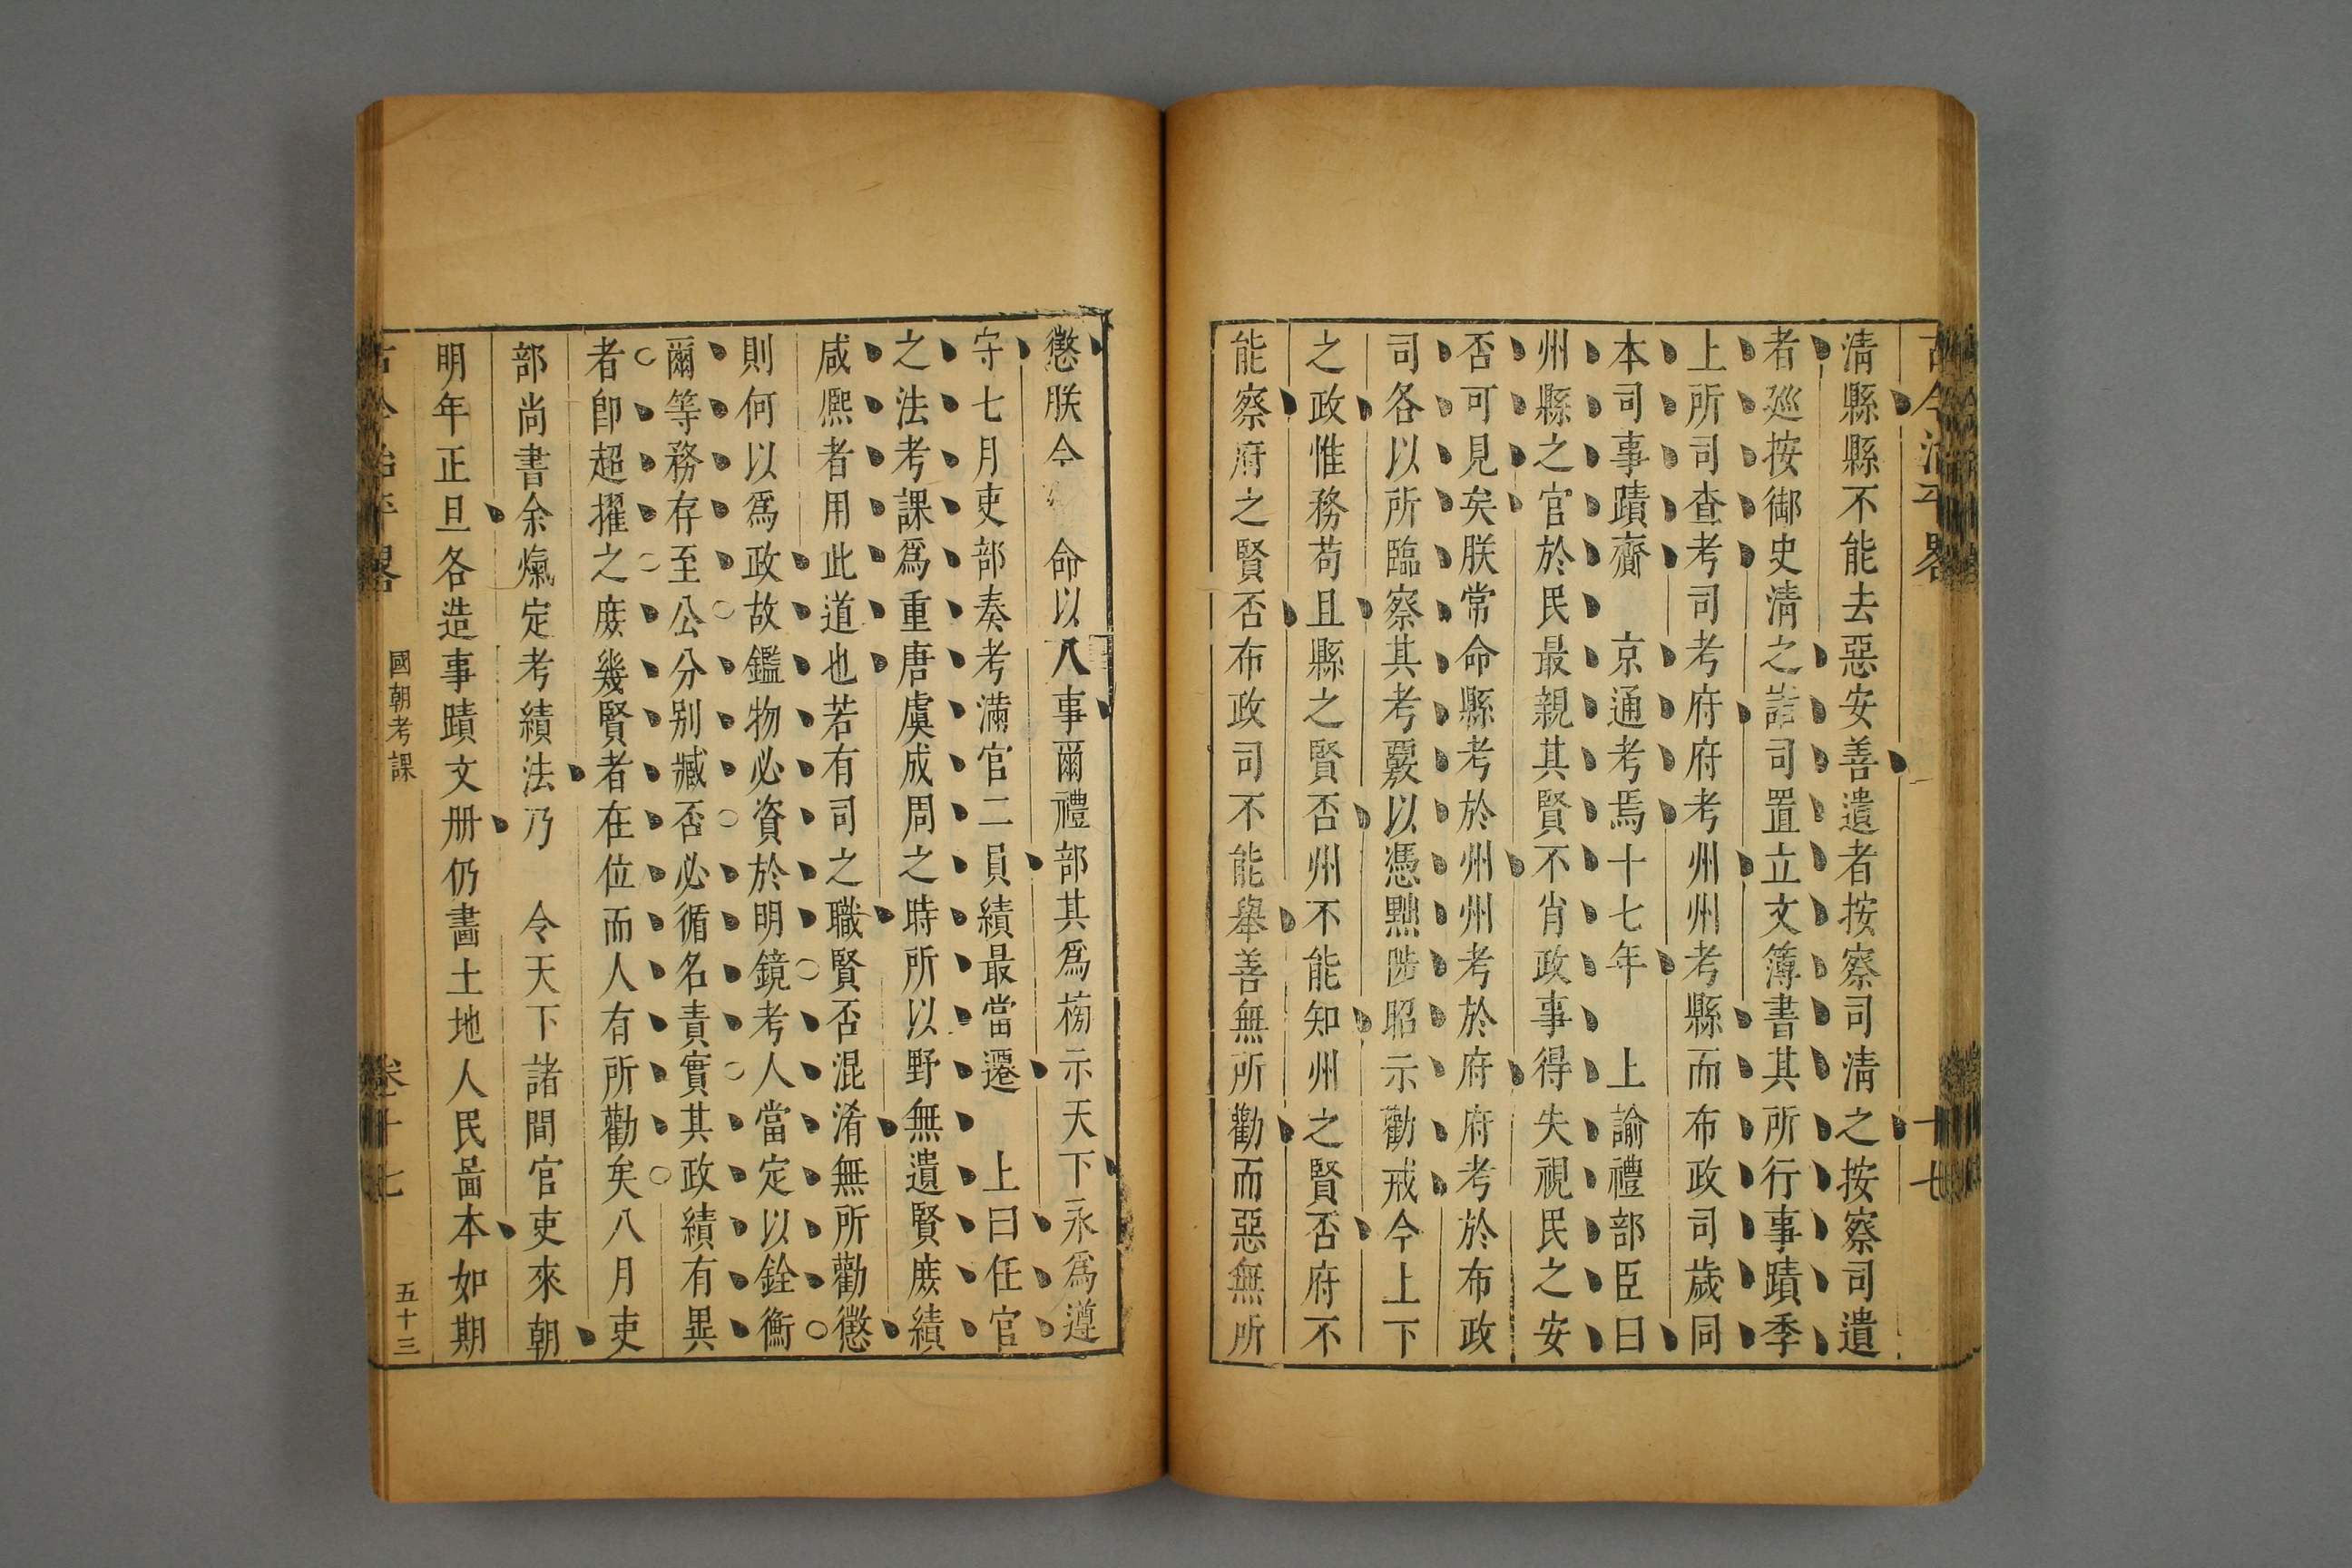 古今治平畧
十七
清縣縣不能去惡安善遣者按察司清之按察司遺
者廵按御史清之諸司置立文簿書其所行事蹟季
上所司查考司考府府考州州考縣而布政司歲同
本司事蹟齎 京通考焉十七年 上諭禮部臣曰
州縣之官於民最親其賢不肖政事得失視民之安
否可見矣朕常命縣考於州州考於府府考於布政
司各以所臨察其考覈以憑黜陟昭示勸戒今上下
之政惟務苟且縣之賢否州不能知州之賢否府不
能察府之賢否布政司不能舉善無所勸而惡無所
懲朕今 命以八事爾禮部其爲榜示天下永爲遵
守七月吏部奏考滿官二員績最當遷 上曰任官
之法考課爲重唐虞成周之時所以野無遺賢庶績
咸熈者用此道也若有司之職賢否混淆無所勸懲
則何以爲政故鑑物必資於明鏡考人當定以銓衡
爾等務存至公分别臧否必循名責實其政績有異
者卽超擢之庶幾賢者在位而人有所勸矣八月吏
部尚書余熂定考績法乃 令天下諸間官吏來朝
明年正旦各造事蹟文册仍畵土地人民啚本如期
古今治平畧
國朝考課
卷十七
五十三